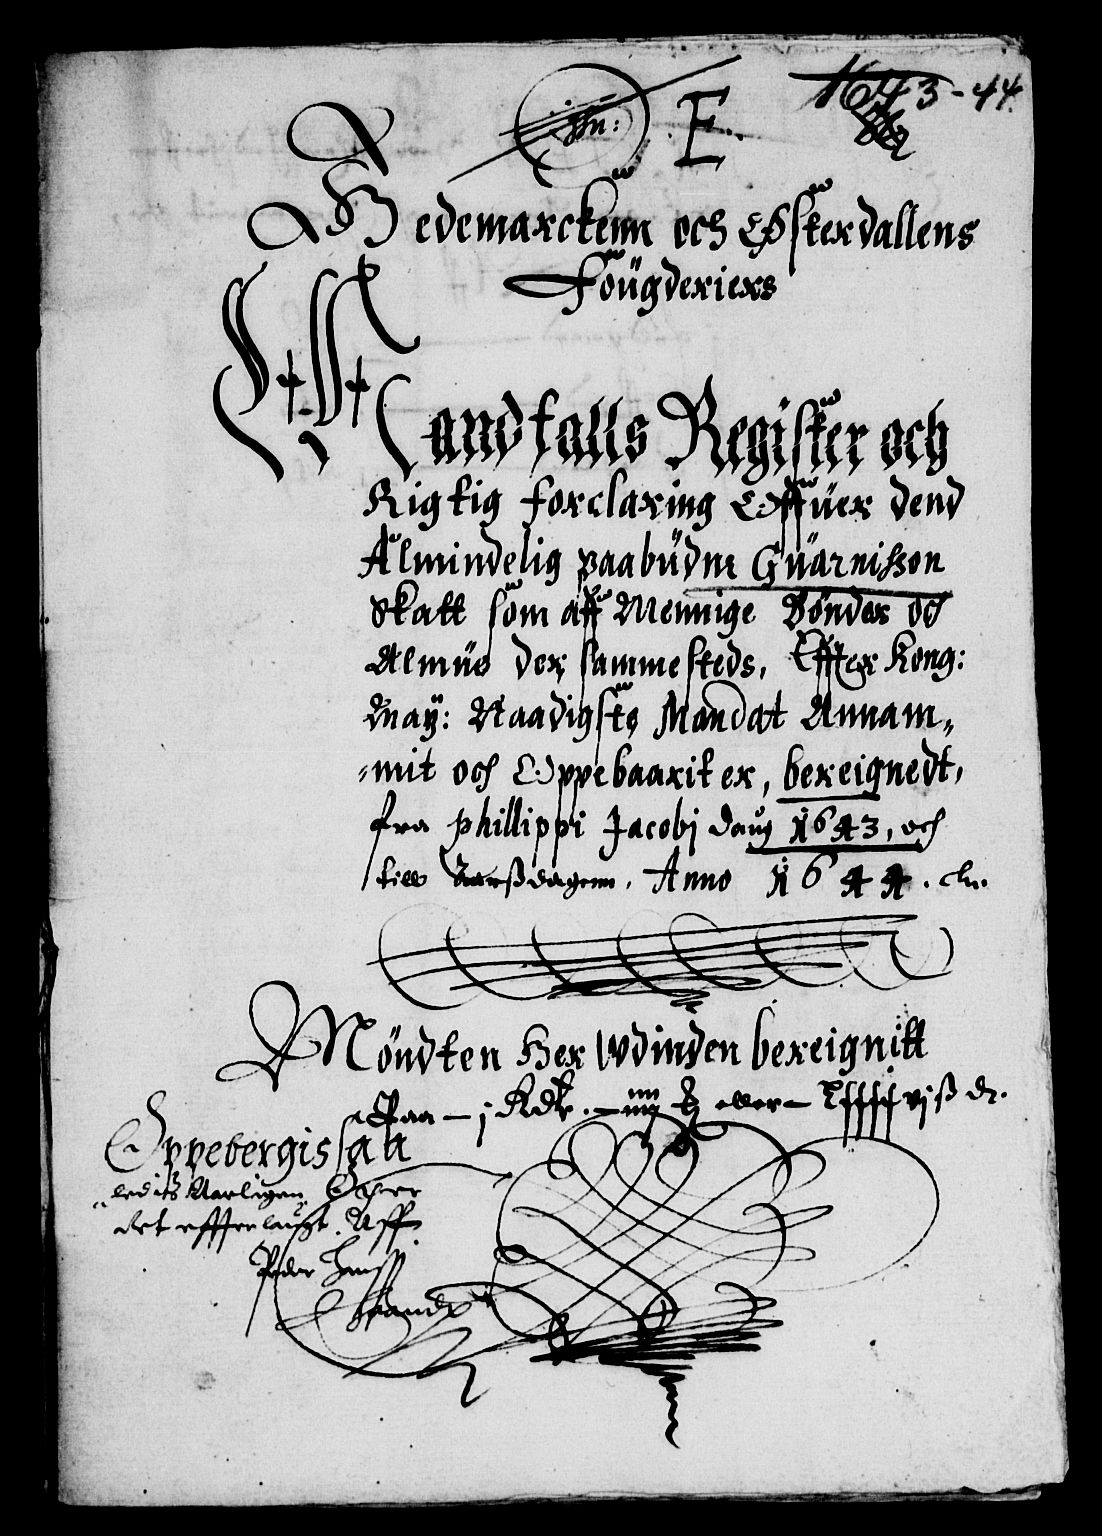 1643-44.
E.
Hedemarckenn och Østerdallens
Fougderiers
Mandtalls Register och
Rigtig forclaring Offuer dend
Almindelig paabudne Guarnisson
Skatt som aff Mennige Bønder och
Almue der sammesteds, Effter Kong:
May: Naadigste Mandat Annam„
„mit och Oppebaarit er, bereignedt,
fra Phillippi Jacobj daug 1643, och
till Aarßdagenn. Anno 1644.
Møndten Her Udinden bereignitt
Paa – j Rdr. – iiij eller – viß dr.
Oppebergissaa
ledits Aarligen
det Aff
Peder